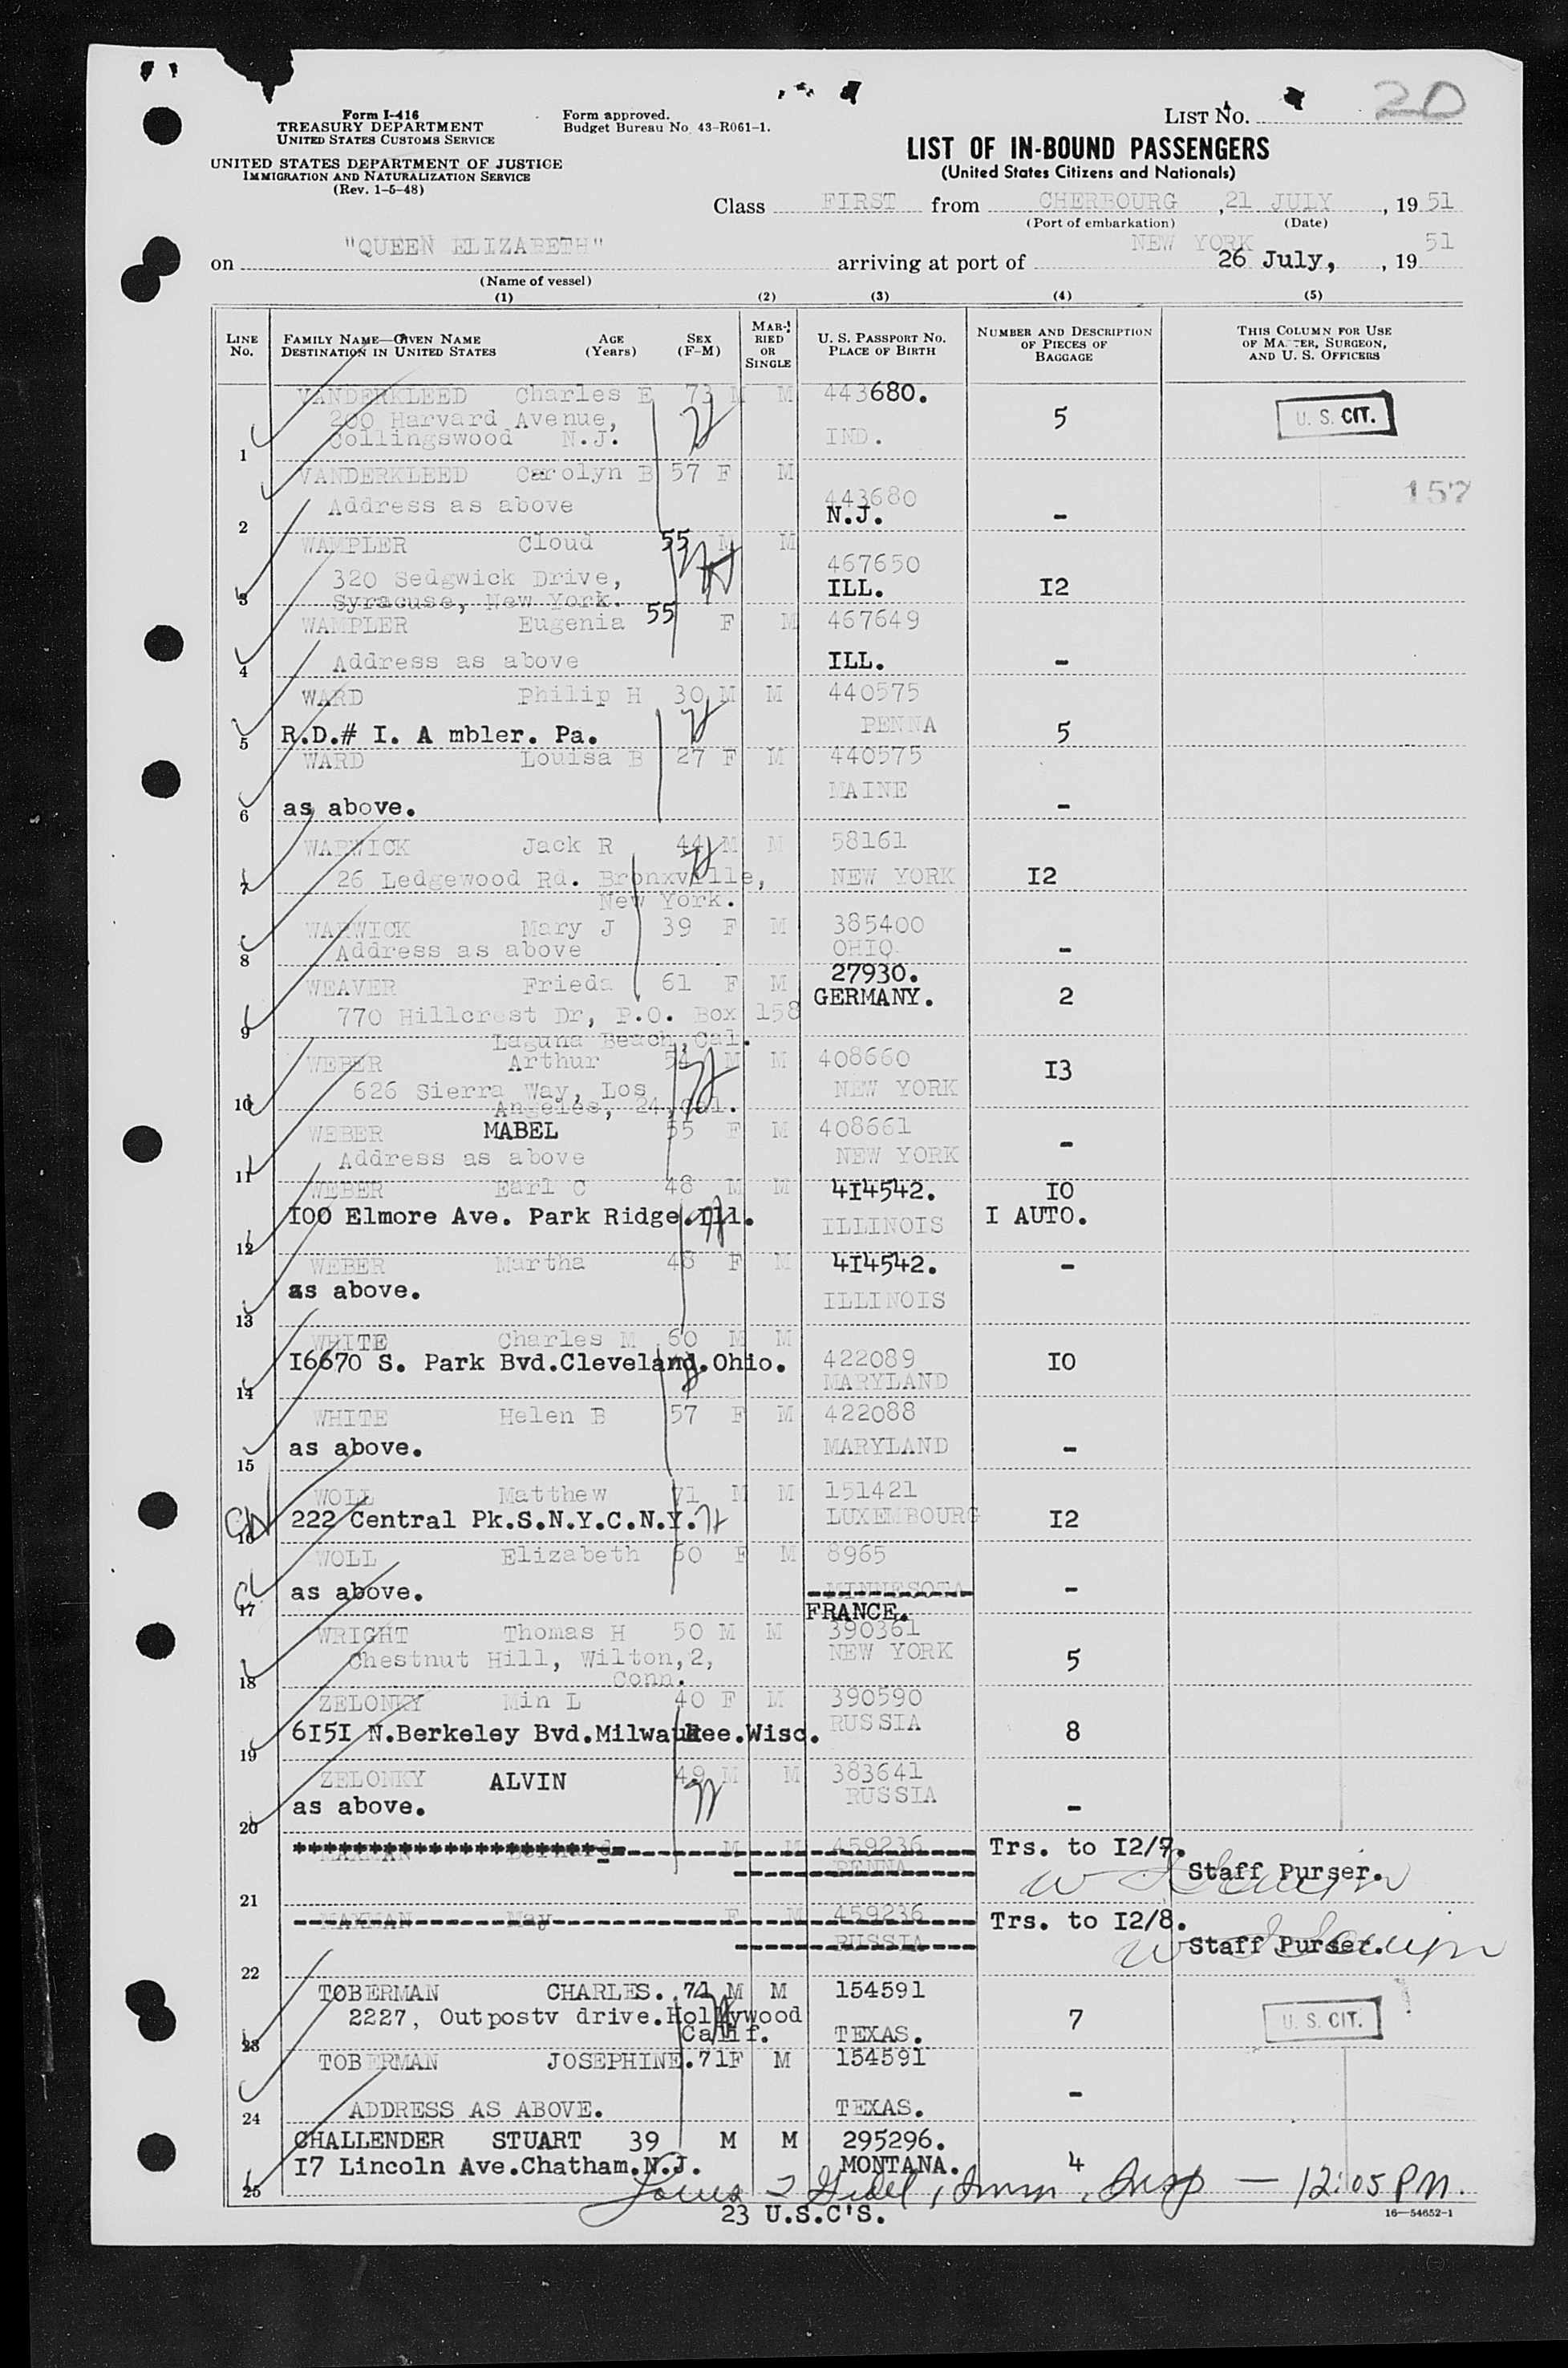 20
Form I-416
TREASURY DEPARTMENT
UNITED STATES CUSTOMS SERVICE
UNITED STATES DEPARTMENT OF JUSTICE
IMMIGRATION AND NATURALIZATION SERVICE
(Rev. 1-5-48)
Form approved.
Budget Bureau No. 43-R061-1.
LIST No.
LIST OF IN-BOUND PASSENGERS
(United States Citizens and Nationals)
Class FIRST from CHERBOURG, 21 JULY, 1951
(Port of embarkation) (Date)
on "QUEEN ELIZABETH" arriving at port of NEW YORK 26 July, 1951
(Name of vessel)
(1) (2) (3) (4) (5)
LINE No.
FAMILY NAME—GIVEN NAME AGE (Years) SEX (F-M)
DESTINATION IN UNITED STATES
MARRIED OR SINGLE
U. S. PASSPORT No.
PLACE OF BIRTH
NUMBER AND DESCRIPTION OF PIECES OF BAGGAGE
THIS COLUMN FOR USE OF MASTER, SURGEON, AND U. S. OFFICERS
VANDERKLEED Charles E 73 M M 443680.
200 Harvard Avenue, 5 U. S. CIT.
1 Collingswood N.J. IND.
VANDERKLEED Carolyn B 57 F M 443680
157
2 Address as above N.J. -
WAMPLER Cloud 55 M M 467650
320 Sedgwick Drive, ILL. I2
3 Syracuse, New York.
WAMPLER Eugenia 55 F M 467649
4 Address as above ILL. -
WARD Philip H 30 M M 440575
5 R.D.# I. A mbler. Pa. PENNA 5
WARD Louisa B 27 F M 440575
MAINE
6 as above. -
WARWICK Jack R 44 M M 58161
7 26 Ledgewood Rd. Bronxville, NEW YORK I2
New York.
WARWICK Mary J 39 F M 385400
8 Address as above OHIO -
WEAVER Frieda 61 F M 27930.
GERMANY. 2
9 770 Hillcrest Dr, P.O. Box 158
Laguna Beach, Cal.
WEBER Arthur 54 M M 408660
I3
10 626 Sierra Way, Los NEW YORK
Angeles, 24, Cal.
WEBER MABEL 55 F M 408661
11 Address as above NEW YORK -
WEBER Earl C 48 M M 4I4542. IO
12 IOO Elmore Ave. Park Ridge.Ill. ILLINOIS I AUTO.
WEBER Martha 48 F M 4I4542. -
13 as above. ILLINOIS
WHITE Charles M 60 M M
14 I6670 S. Park Bvd.Cleveland.Ohio. 422089 IO
MARYLAND
WHITE Helen B 57 F M 422088
15 as above. MARYLAND -
WOLL Matthew 71 M M 151421
16 222 Central Pk.S.N.Y.C.N.Y. LUXEMBOURG I2
WOLL Elizabeth 60 F M 8965
17 as above. MINNESOTA -
FRANCE.
WRIGHT Thomas H 50 M M 390361
18 Chestnut Hill, Wilton,2, NEW YORK 5
Conn.
ZELONKY Min L 40 F M 390590
19 6I5I N.Berkeley Bvd.Milwaukee.Wisc. RUSSIA 8
ZELONKY ALVIN 49 M M 383641
20 as above. RUSSIA -
Bernard M M 459236 Trs. to I2/7.
21 PENNA Staff Purser.
MAXMAN May F M 459236 Trs. to I2/8.
22 RUSSIA Staff Purser.
TOBERMAN CHARLES. 71 M M 154591
23 2227, Outpostv drive.Hollywood 7 U. S. CIT.
Calif. TEXAS.
TOBERMAN JOSEPHINE. 71F M 154591
-
24 ADDRESS AS ABOVE. TEXAS.
CHALLENDER STUART 39 M M 295296.
25 I7 Lincoln Ave.Chatham.N.J. MONTANA. 4
Imm. Insp — 12:05 PM.
23 U.S.C'S.
16—54652-1